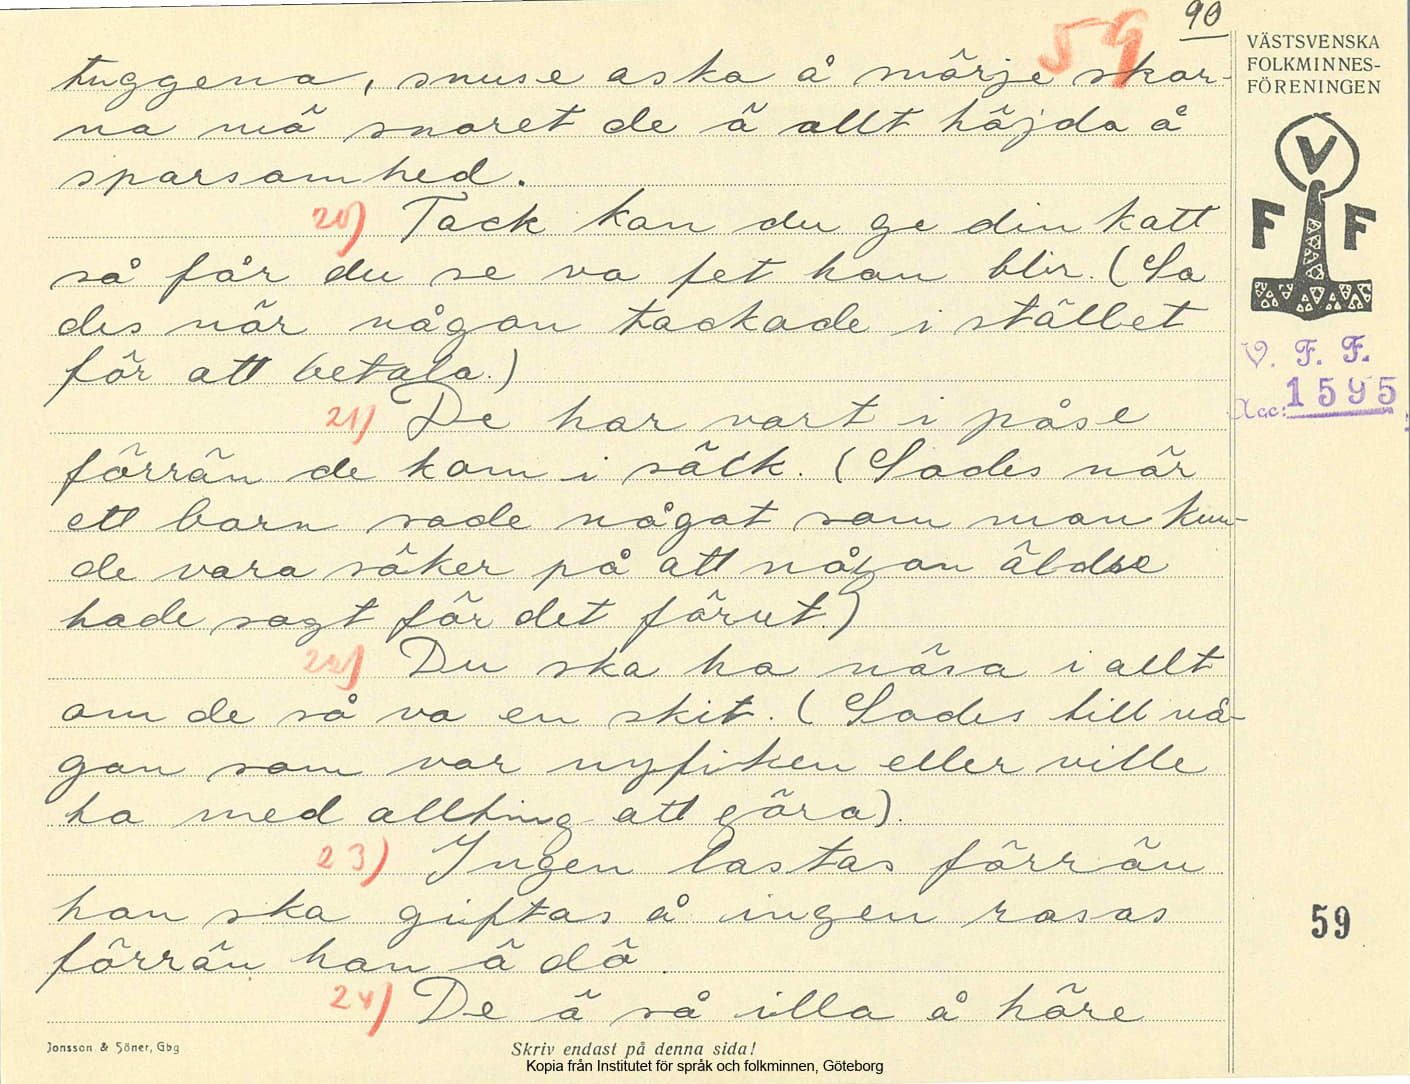 90
59
VÄSTSVENSKA
FOLKMINNES-
FÖRENINGEN
V
F F
V. F. F.
Acc: 1595
tuggena, snuse aska å smörje skor-
na mä snoret de ä allt höjda å
sparsamhed.
20) Tack kan du ge din katt
så får du se va fet han blir. (Sa
des när någon tackade i stället
för att betala.)
21) De har vart i påse
förrän de kom i säck. (Sades när
ett barn sade något som man kun-
de vara säker på att någon äldre
hade sagt för det förut.)
22) Du ska ha näsa i allt
om de så va en skit. (Sades till nå-
gon som var nyfiken eller ville
ha med allting att göra).
23) Ingen lastas förrän
han ska giftas å ingen rosas
förrän han ä dö.
24) De ä så illa å höre
59
Jonsson & Söner, Gbg
Skriv endast på denna sida!
Kopia från Institutet för språk och folkminnen, Göteborg